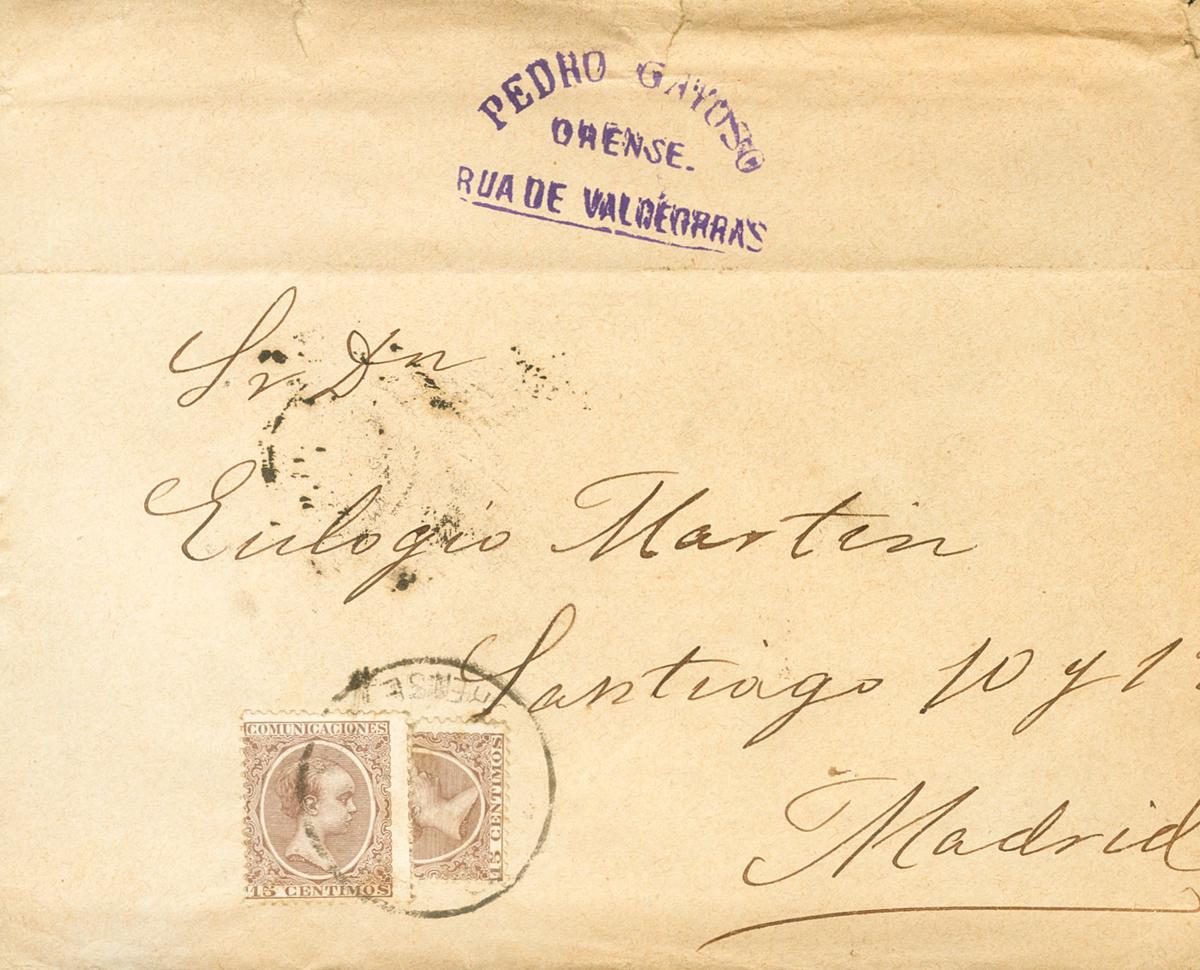 PEDRO GAYOSO
ORENSE.
RUA DE VALDEORRAS
Sr Dn
Eulogio Martin
Santiago 10 y
Madrid
COMUNICACIONES
15 CENTIMOS
15 CENTIMOS